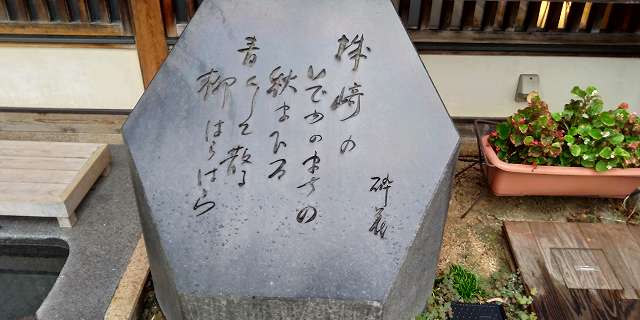 城崎の
いでゆのまちの
秋まひる
青くして散る
柳はらはら
砕花